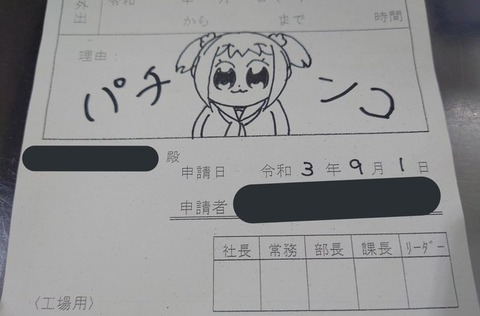 外出
から まで 時間
理由:
パチ ンコ
殿
申請日 令和 3 年 9 月 1 日
申請者
社長 常務 部長 課長 リーダー
〈工場用〉